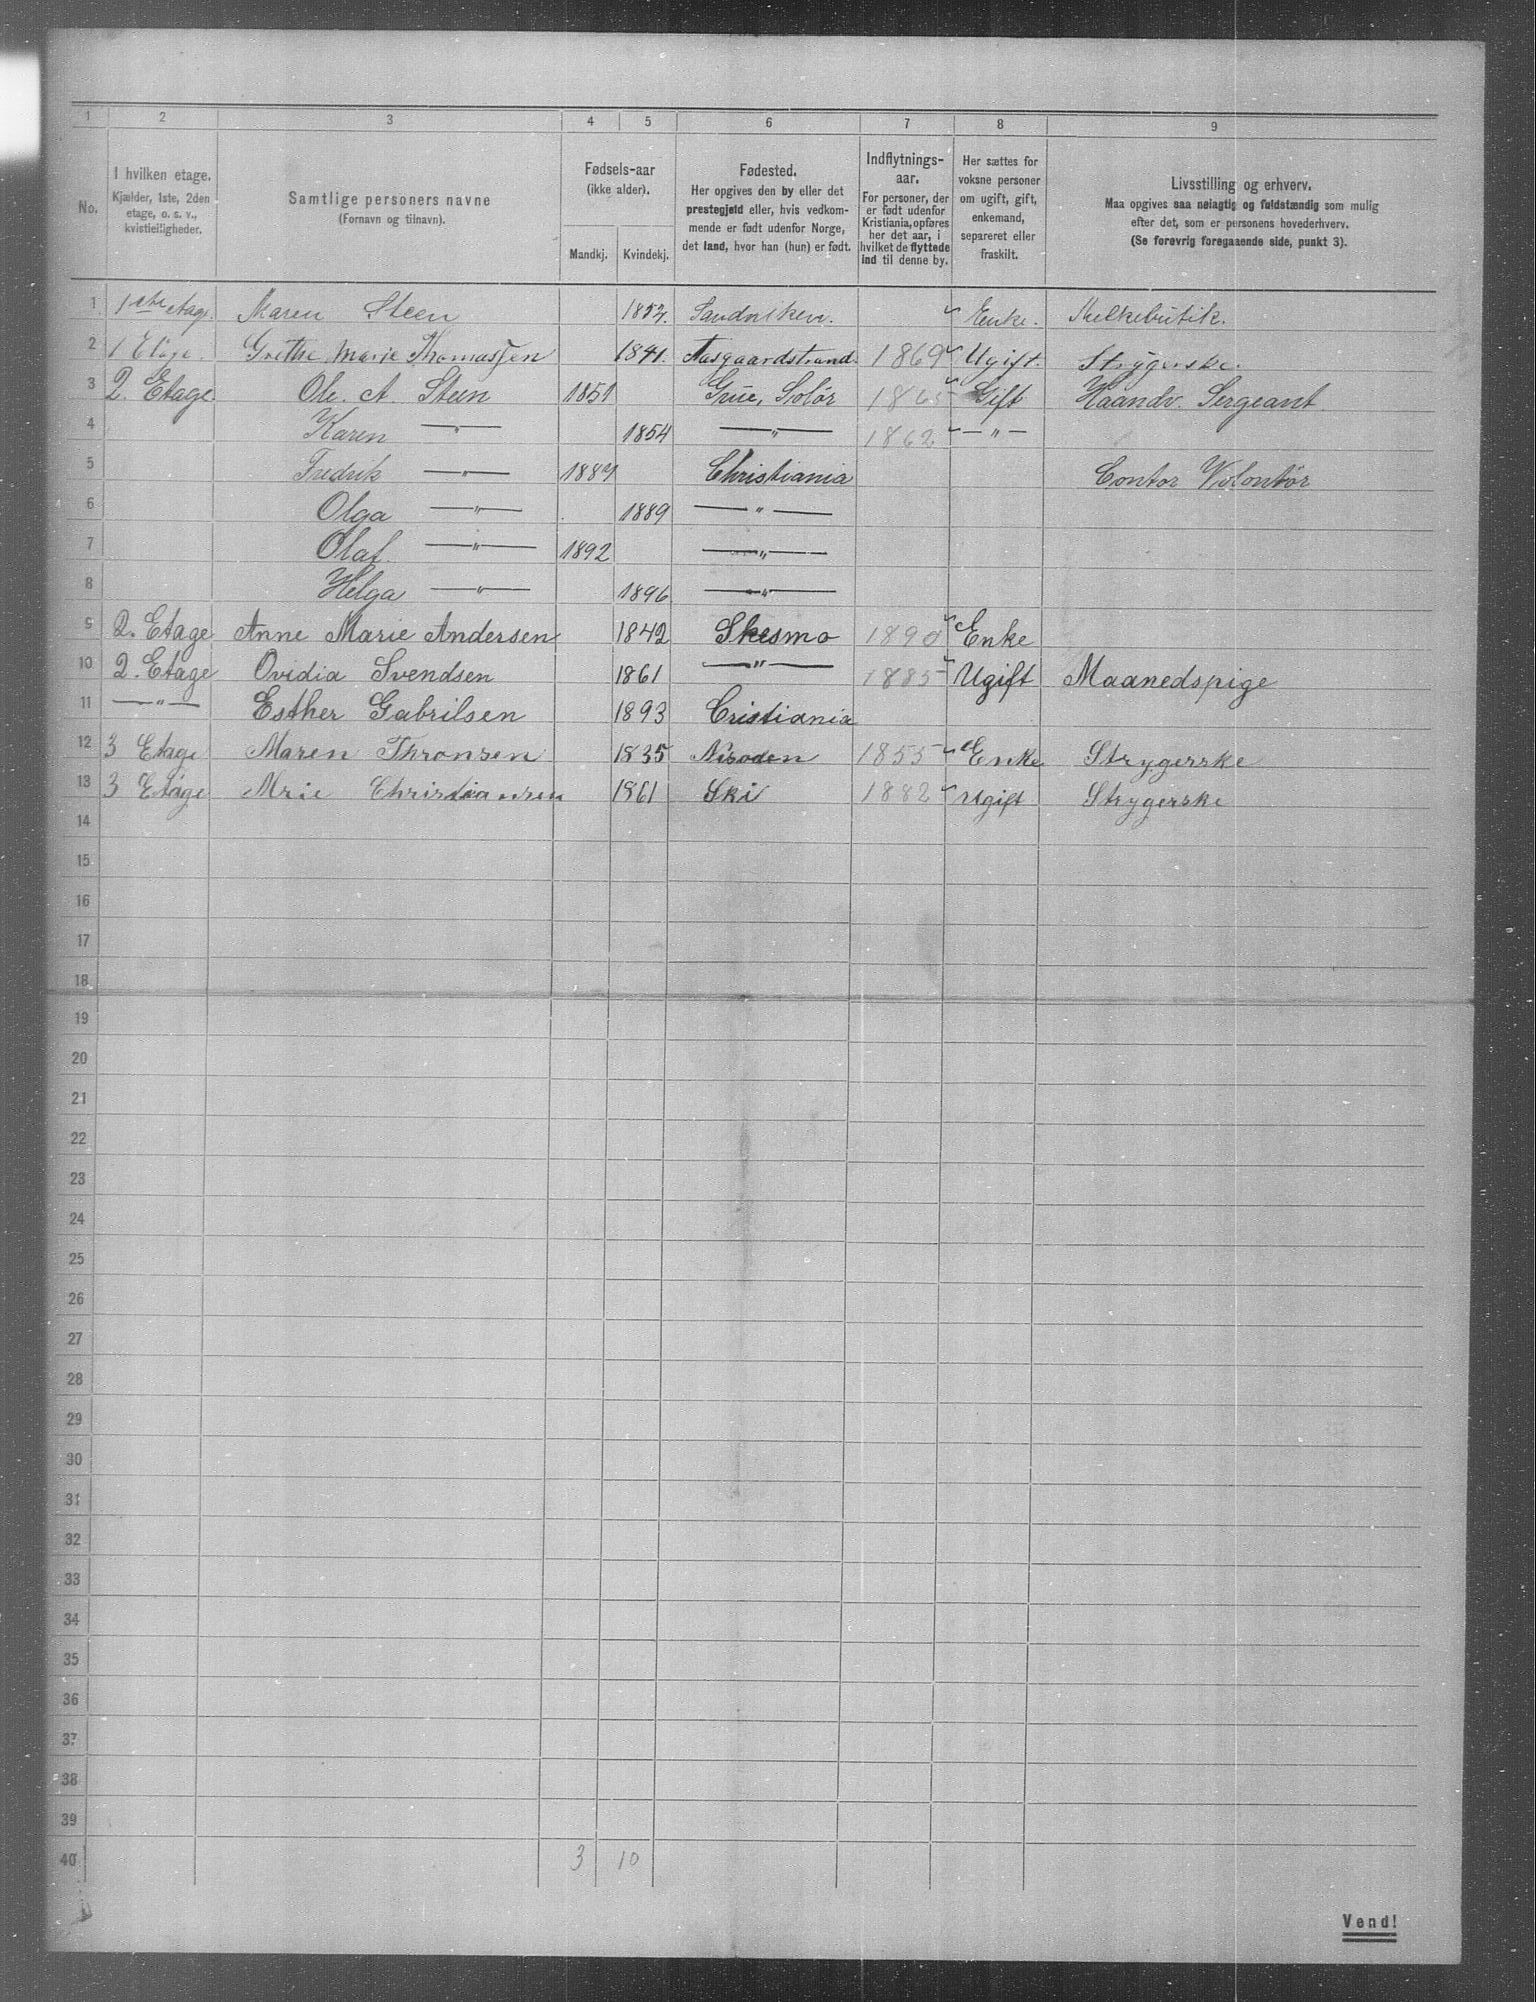 1 2 3 4 5 6 7 8 9
No.
I hvilken etage.
Kjælder, 1ste, 2den
etage, o. s. v.,
kvistleiligheder.
Samtlige personers navne
(Fornavn og tilnavn).
Fødsels-aar
(ikke alder).
Mandkj. Kvindekj.
Fødested.
Her opgives den by eller det
prestegjeld eller, hvis vedkom-
mende er født udenfor Norge,
det land, hvor han (hun) er født.
Indflytnings-
aar.
For personer, der
er født udenfor
Kristiania, opføres
her det aar, i
hvilket de flyttede
ind til denne by.
Her sættes for
voksne personer
om ugift, gift,
enkemand,
separeret eller
fraskilt.
Livsstilling og erhverv.
Maa opgives saa nøiagtig og fuldstændig som mulig
efter det, som er personens hovederhverv.
(Se forøvrig foregaaende side, punkt 3).
1 1ste etag. Maren Steen Sandviken. Enke. Melkebutik.
2 1 Etage. Grethe Marie Thomassen 1841. Aasgaardstrand. 1869 Ugift. Strygerske.
3 2. Etage. Ole. A. Steen 1851 Grue, Solør 1865 Gift Haandv. Sergeant
4 Karen —"— 1854 —"— 1862 —"—
5 Fredrik —"— 1887 Christiania Contor Volontør
6 Olga —"— 1889 —"—
7 Olaf. —"— 1892 —"—
8 Helga —"— 1896 —"—
9 2. Etage Anne Marie Andersen 1842 Skesmo 1890 Enke
10 2. Etage Ovidia Svendsen 1861 —"— 1885 Ugift Maanedspige
11 —"— Esther Gabrilsen 1893 Cristiania
12 3 Etage Maren Thronsen 1835 Nesoden 1855 Enke Strygerske
13 3 Etage Mrie Christiansen 1861 Ski 1882 Ugift Strygerske
14
15
16
17
18
19
20
21
22
23
24
25
26
27
28
29
30
31
32
33
34
35
36
37
38
39
40 3 10
Vend!